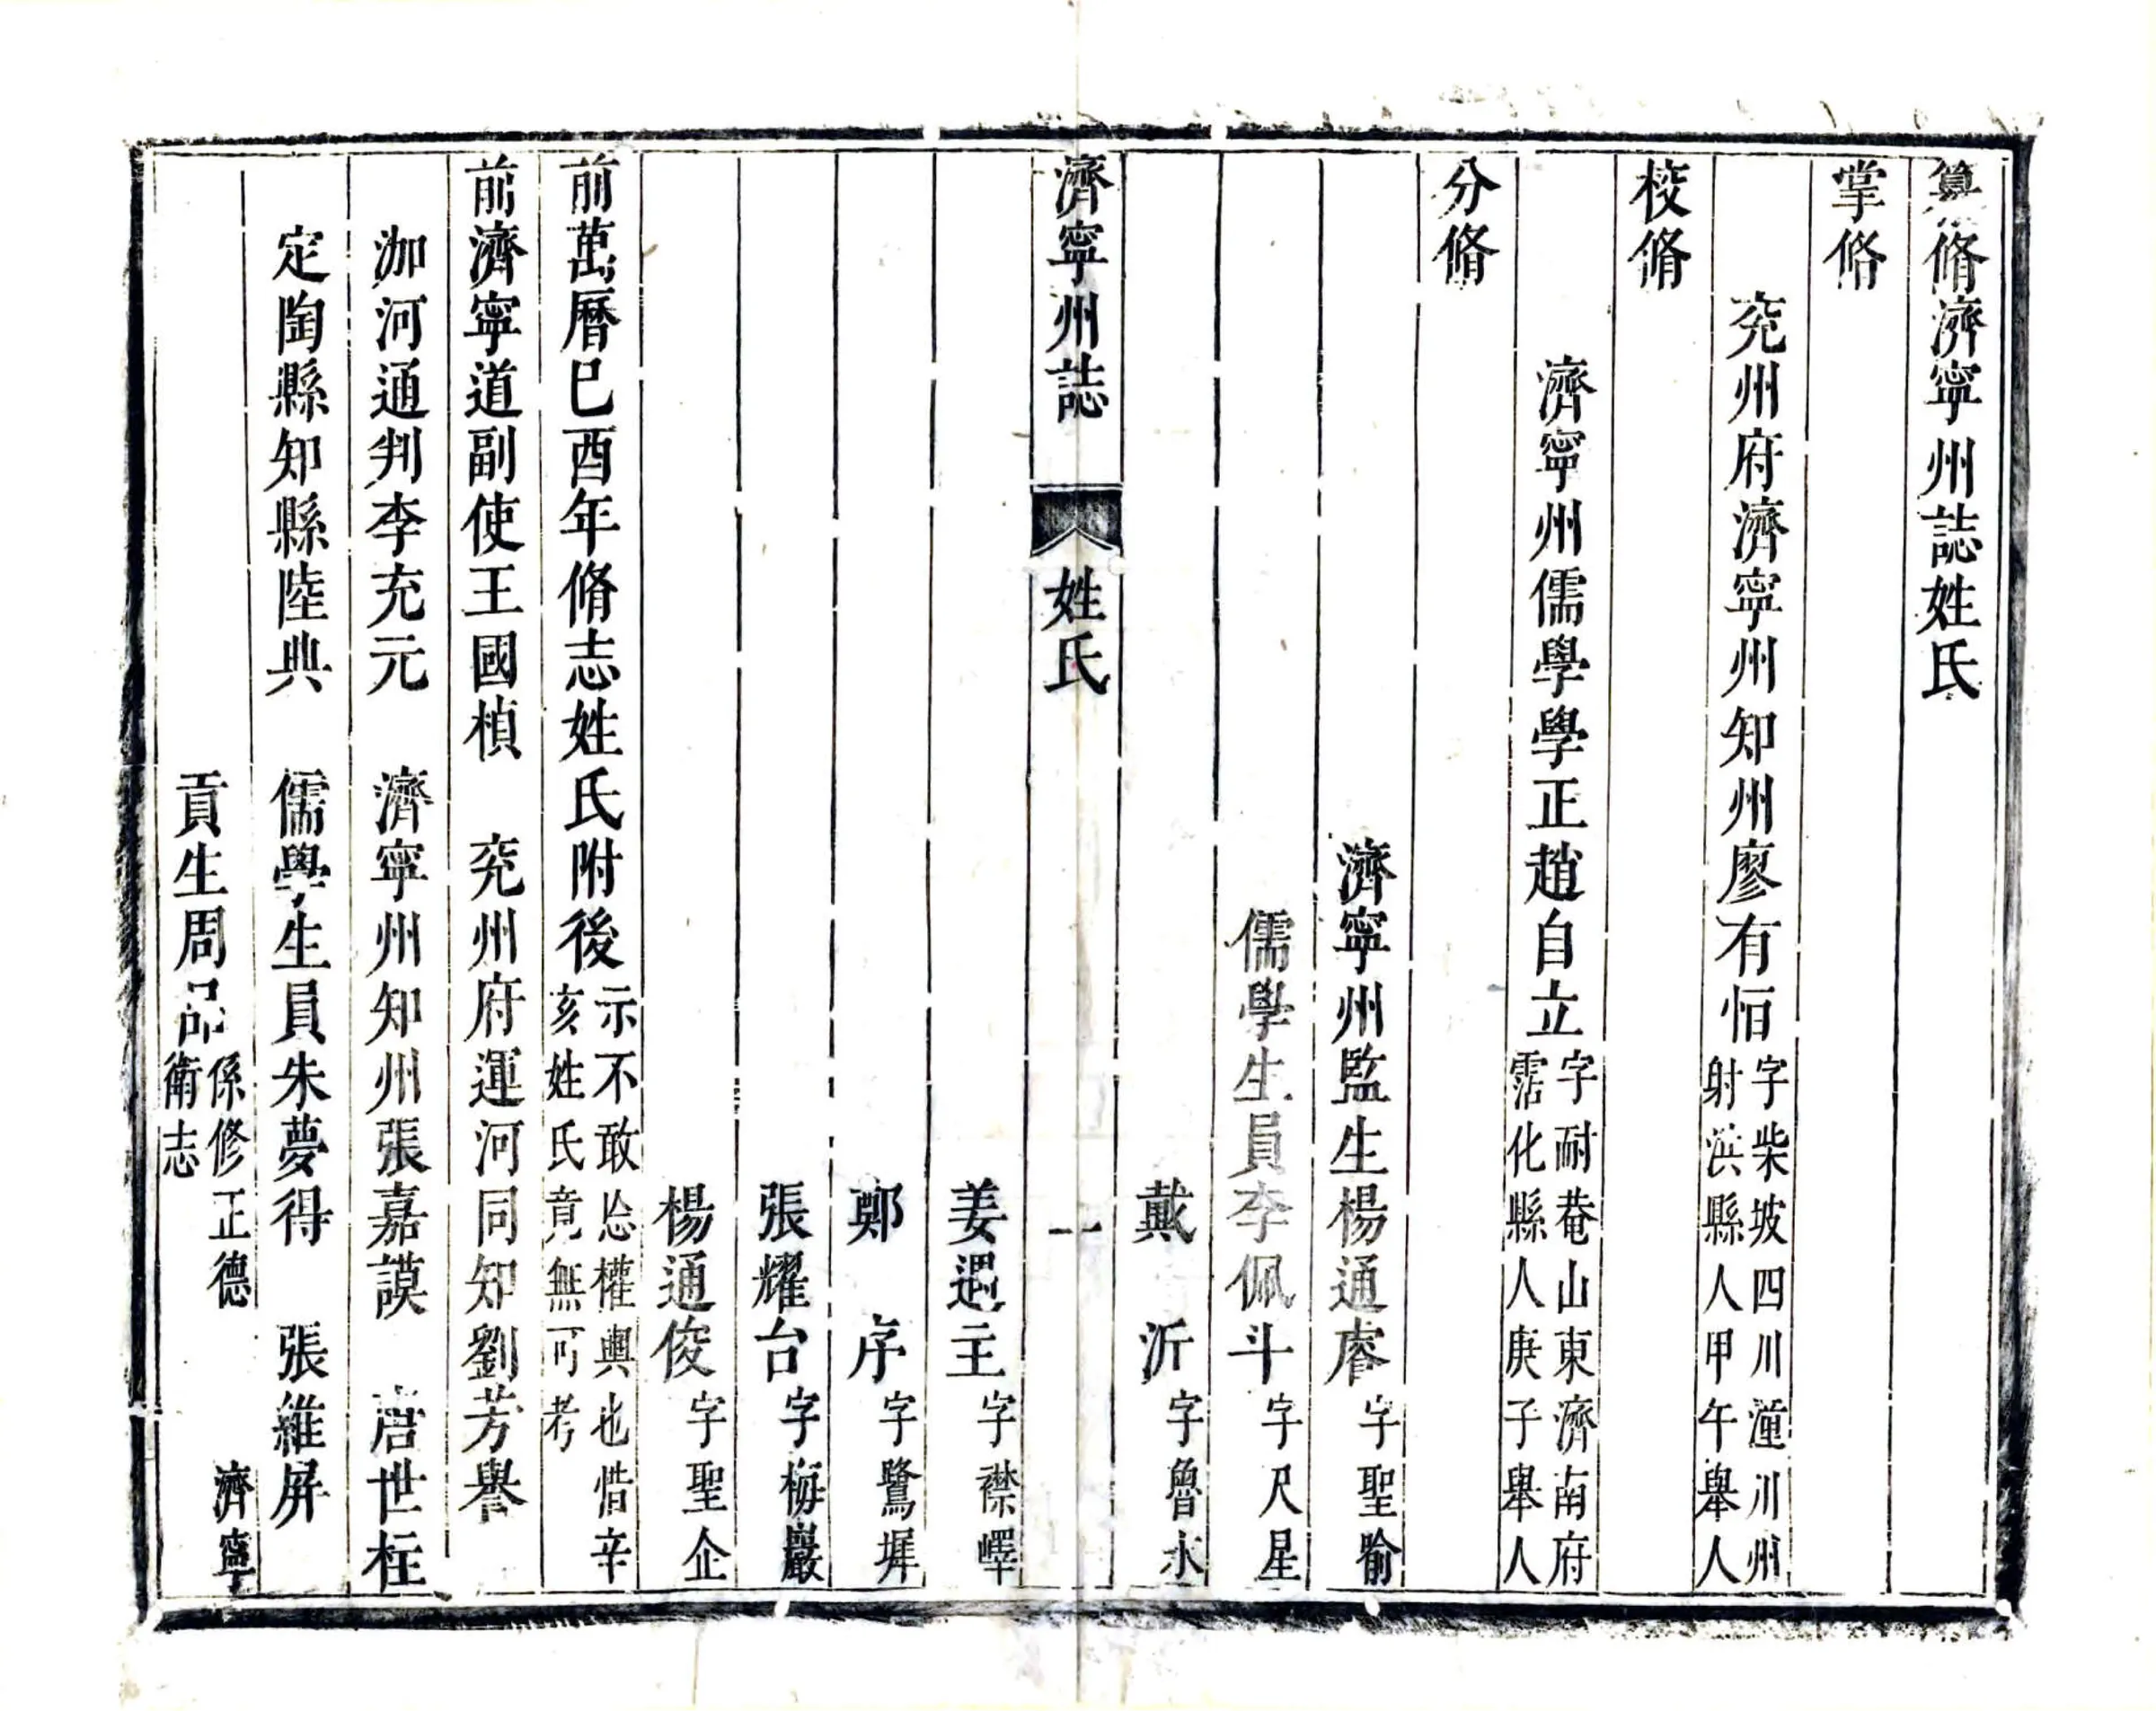 纂脩濟寧州誌姓氏
掌脩
兖州府濟寧州知州廖有恒字柴坡四川潼川州射洪縣人甲午舉人
校脩
濟寧州儒學學正趙自立字耐菴山東濟南府霑化縣人庚子舉人
分脩
濟寧州監生楊通睿字聖喻
儒學生員李佩斗字尺星
戴沂字魯水
濟寧州誌 姓氏 一
姜遇主字襟嶧
鄭序字鷺墀
張耀台字梅巖
楊通俊字聖企
前萬曆巳酉年脩志姓氏附後示不敢忘權輿也惜辛亥姓氏竟無可考
前濟寧道副使王國楨 兖州府運河同知劉芳譽
泇河通判李充元 濟寧州知州張嘉謨 唐世柱
定陶縣知縣陸典 儒學生員朱夢得 張維屏
貢生周品係修正德衛志 濟寧